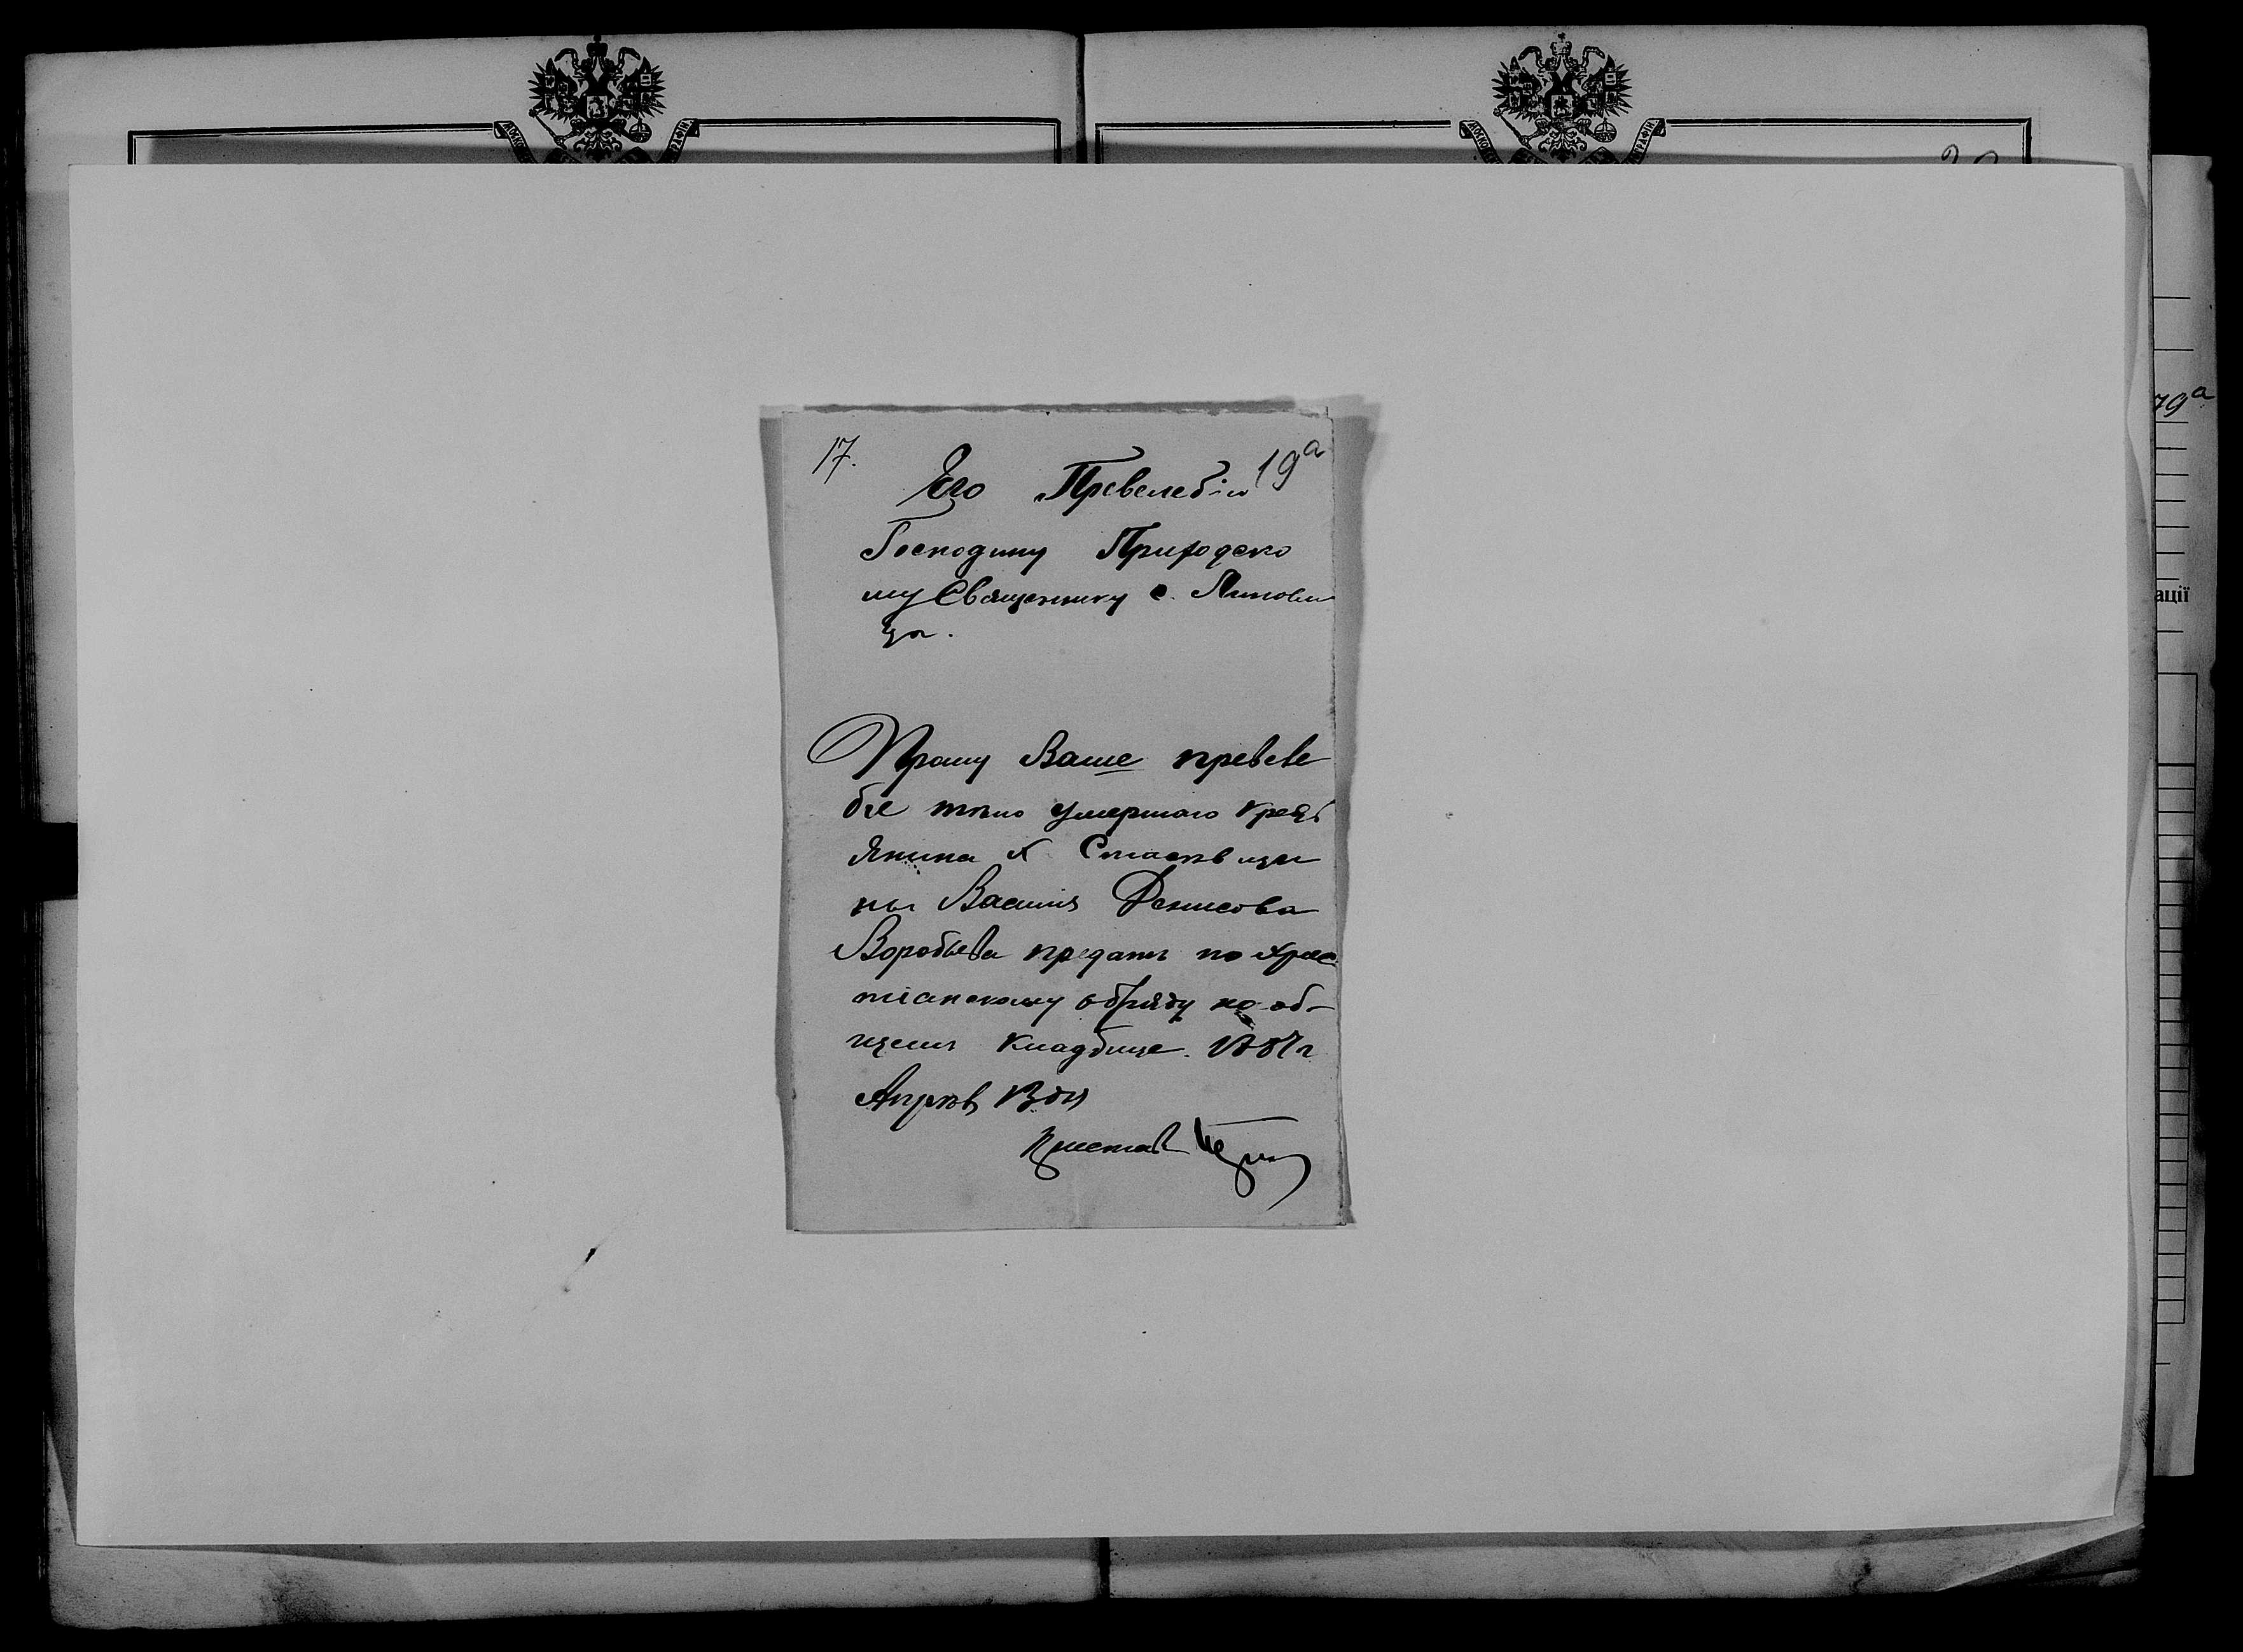 17.
19а
Его Превелебію
Господину Приходско
му Священику с. Липовы
ца.
Прошу Ваше превеле
біе тѣло умершаго крест
янина х
ны Василія Денисова
Воробьева предать по хрис
тіанскому обряду на об-
щемъ кладбище. 1887 г
Апрѣль 13 дня
Приставъ
79а
ації